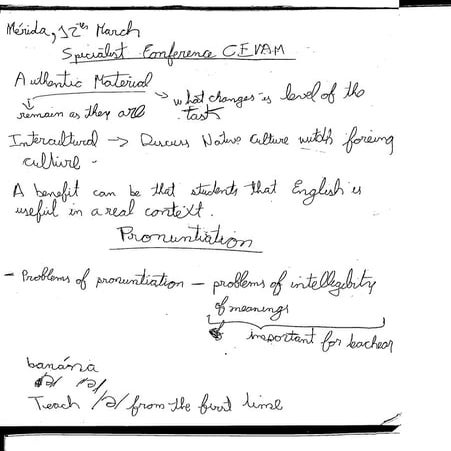 Mérida, 12th March
Specialist Conference CEVAM
Authentic Material
remain as they are
what changes is level of the
task
Intercultural → Discuss Native Culture with foreing
culture -
A benefit can be that students that English is
useful in a real context.
Pronuntiation
- Problems of pronuntiation - problems of intellegebity
of meanings
important for teacher
banana
/ə/
Teach /ə/ from the first time